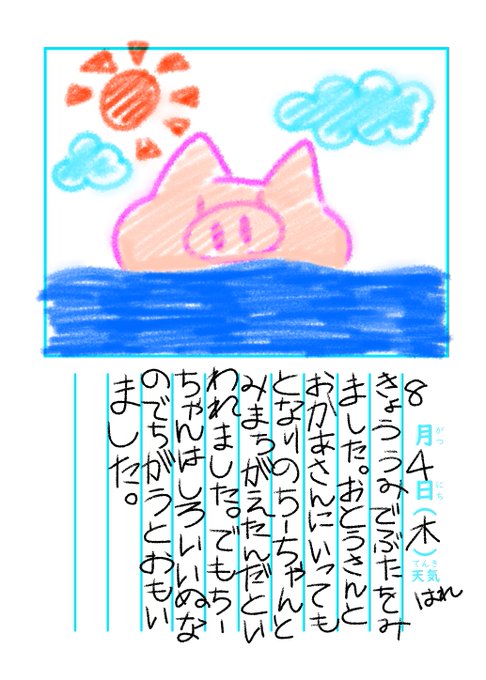 8月4日(木)天気 はれ
がつ にち てんき
きょううみでぶたをみ
ました。おとうさんと
おかあさんにいっても
となりのちーちゃんと
みまちがえたんだとい
われました。でもちー
ちゃんはしろいいぬな
のでちがうとおもい
ました。